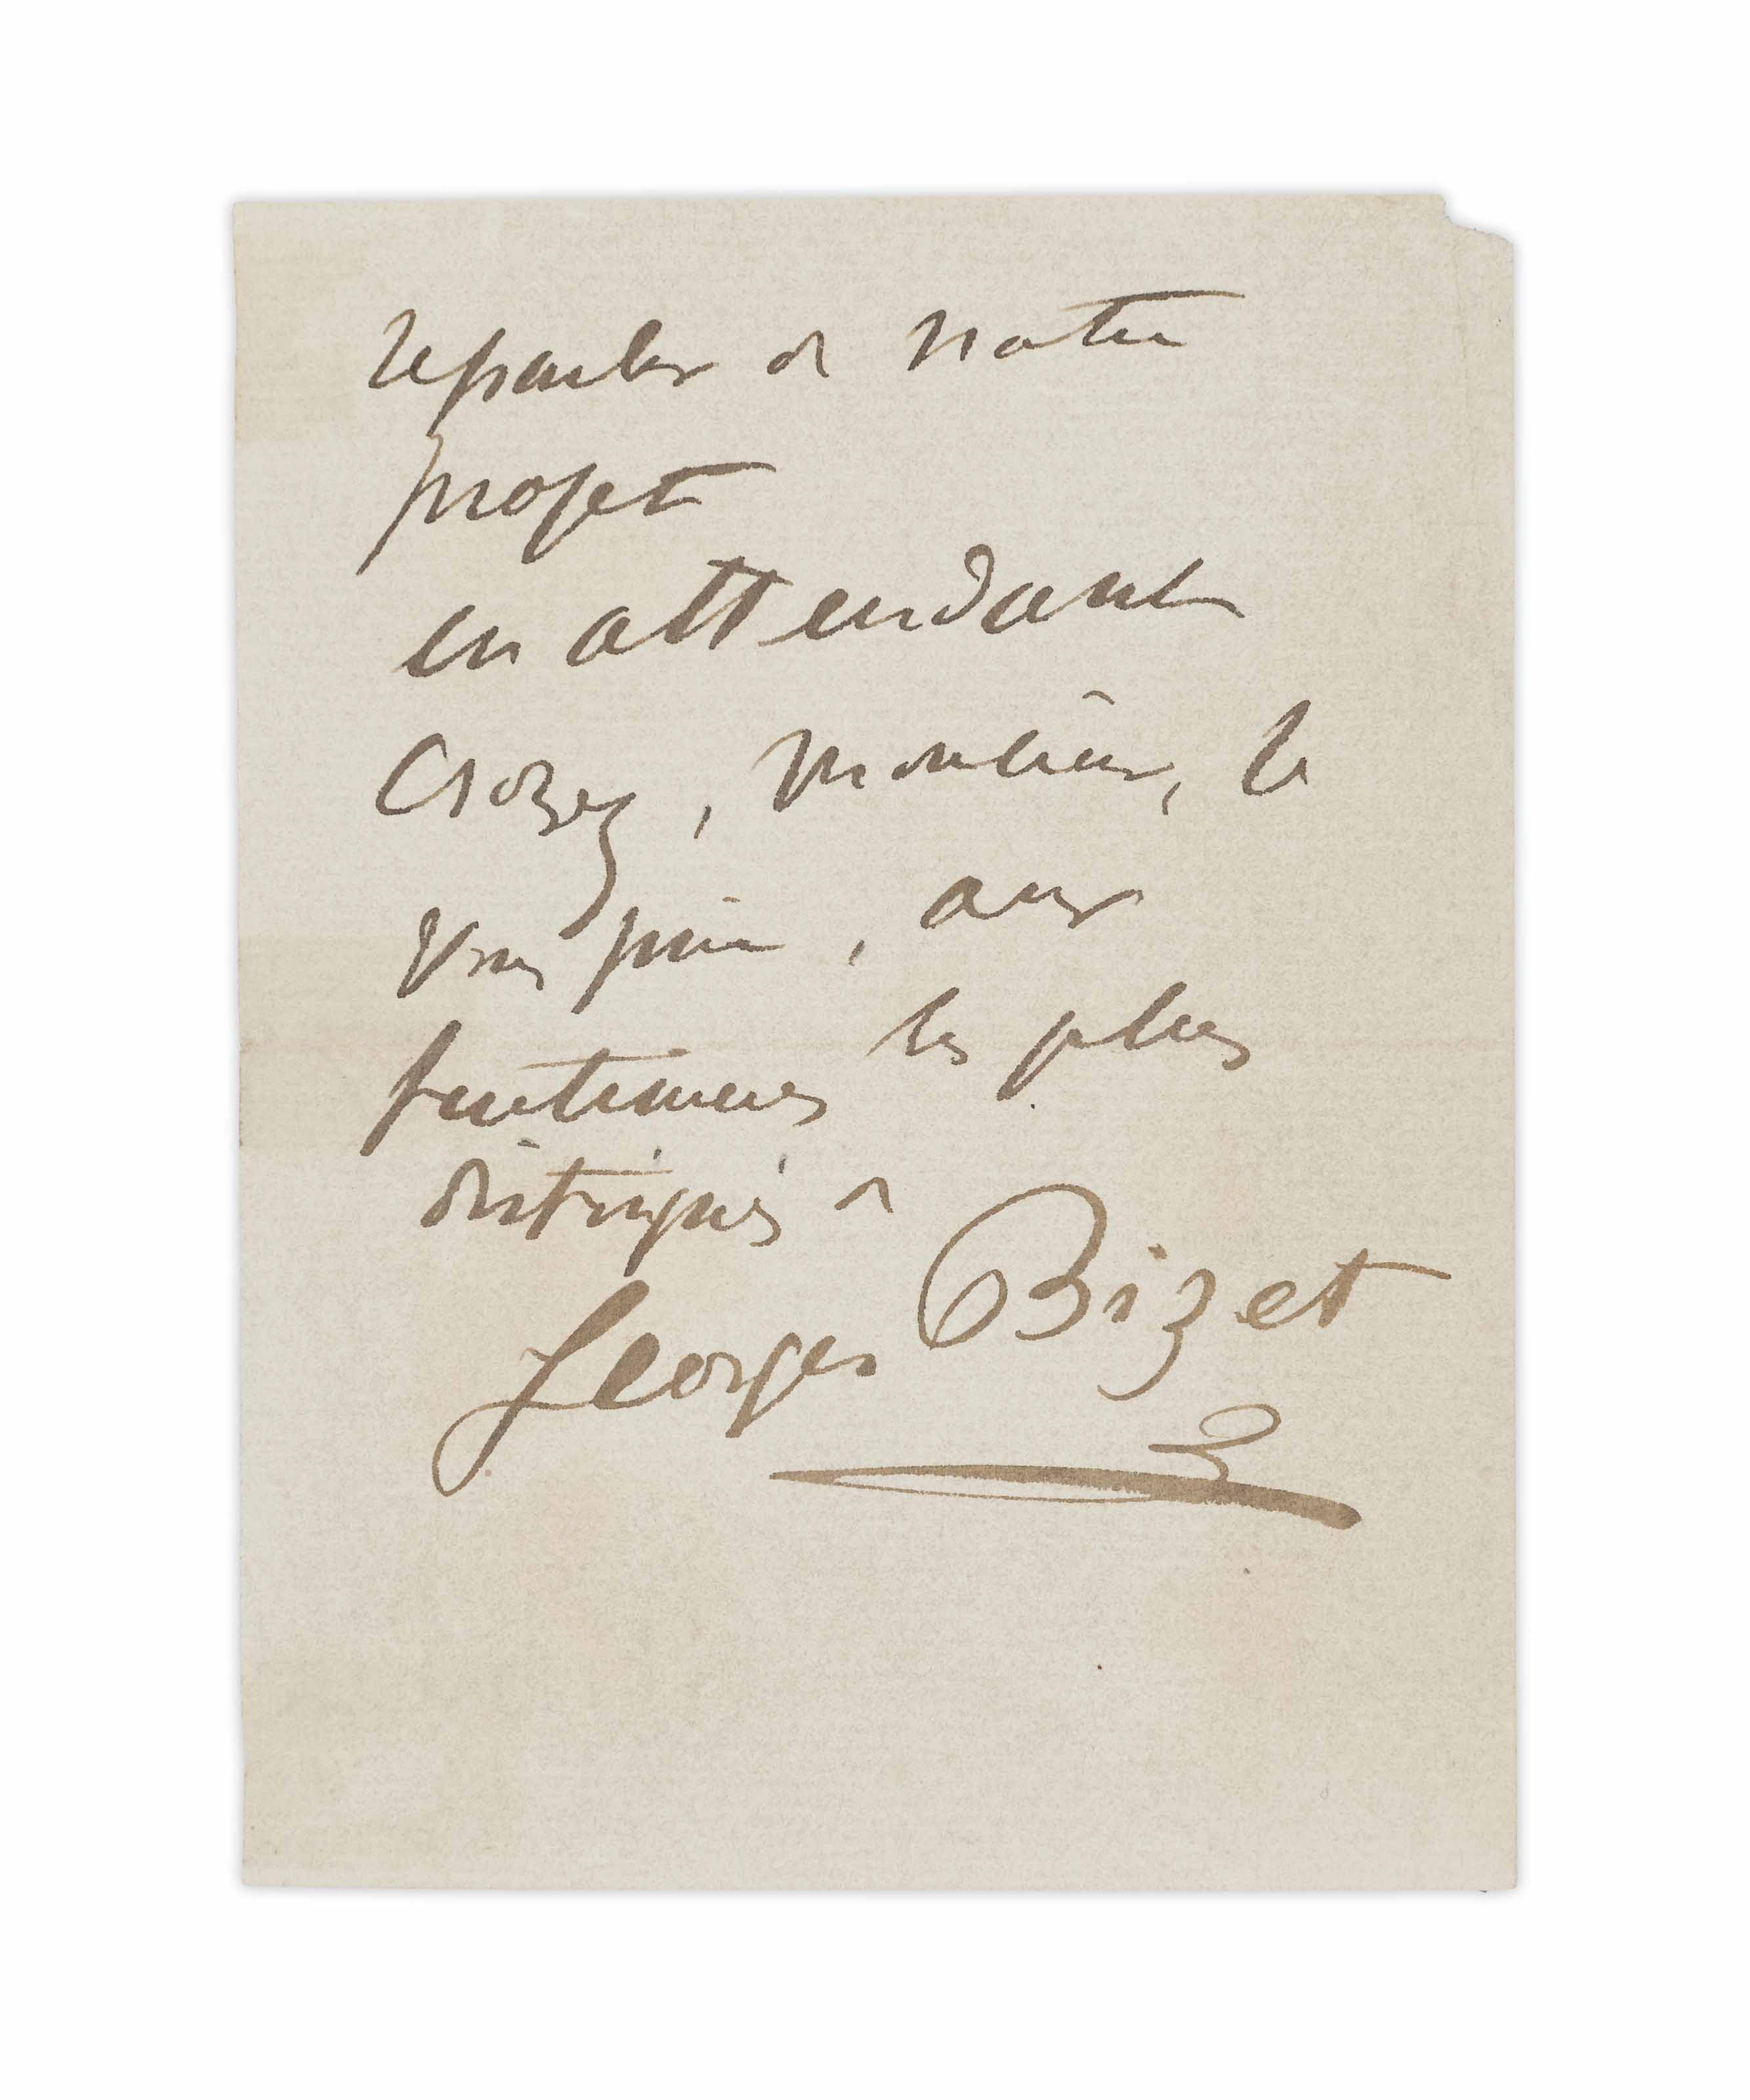 reparler de notre
projet
en attendant
Croyez, Monsieur, je
vous prie, aux
sentiments les plus
distingués de
Georges Bizet